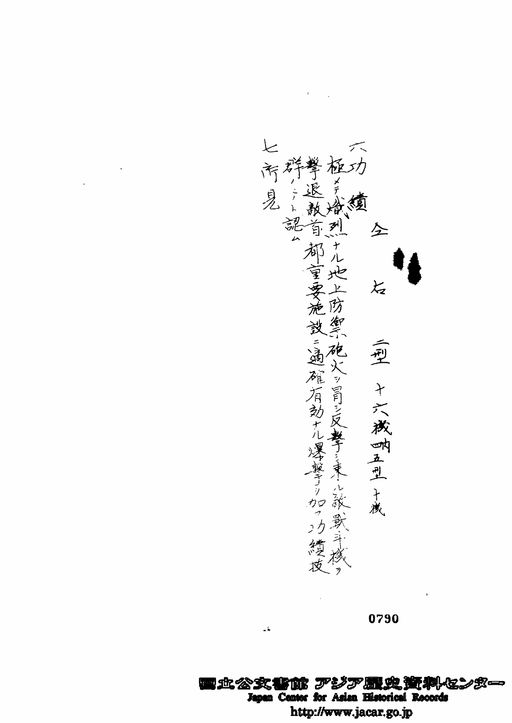 仝右 二型十六機 四五型十機
六功績
極メテ熾烈ナル地上防禦砲火ヲ冒シ反撃シ来ル敵戦斗機ヲ
撃退敵首都重要施設ニ適確有効ナル爆撃ヲ加フ功績抜
群ノモノト認ム
七所見
0790
国立公文書館 アジア歴史資料センター
Japan Center for Asian Historical Records
http://www.jacar.go.jp